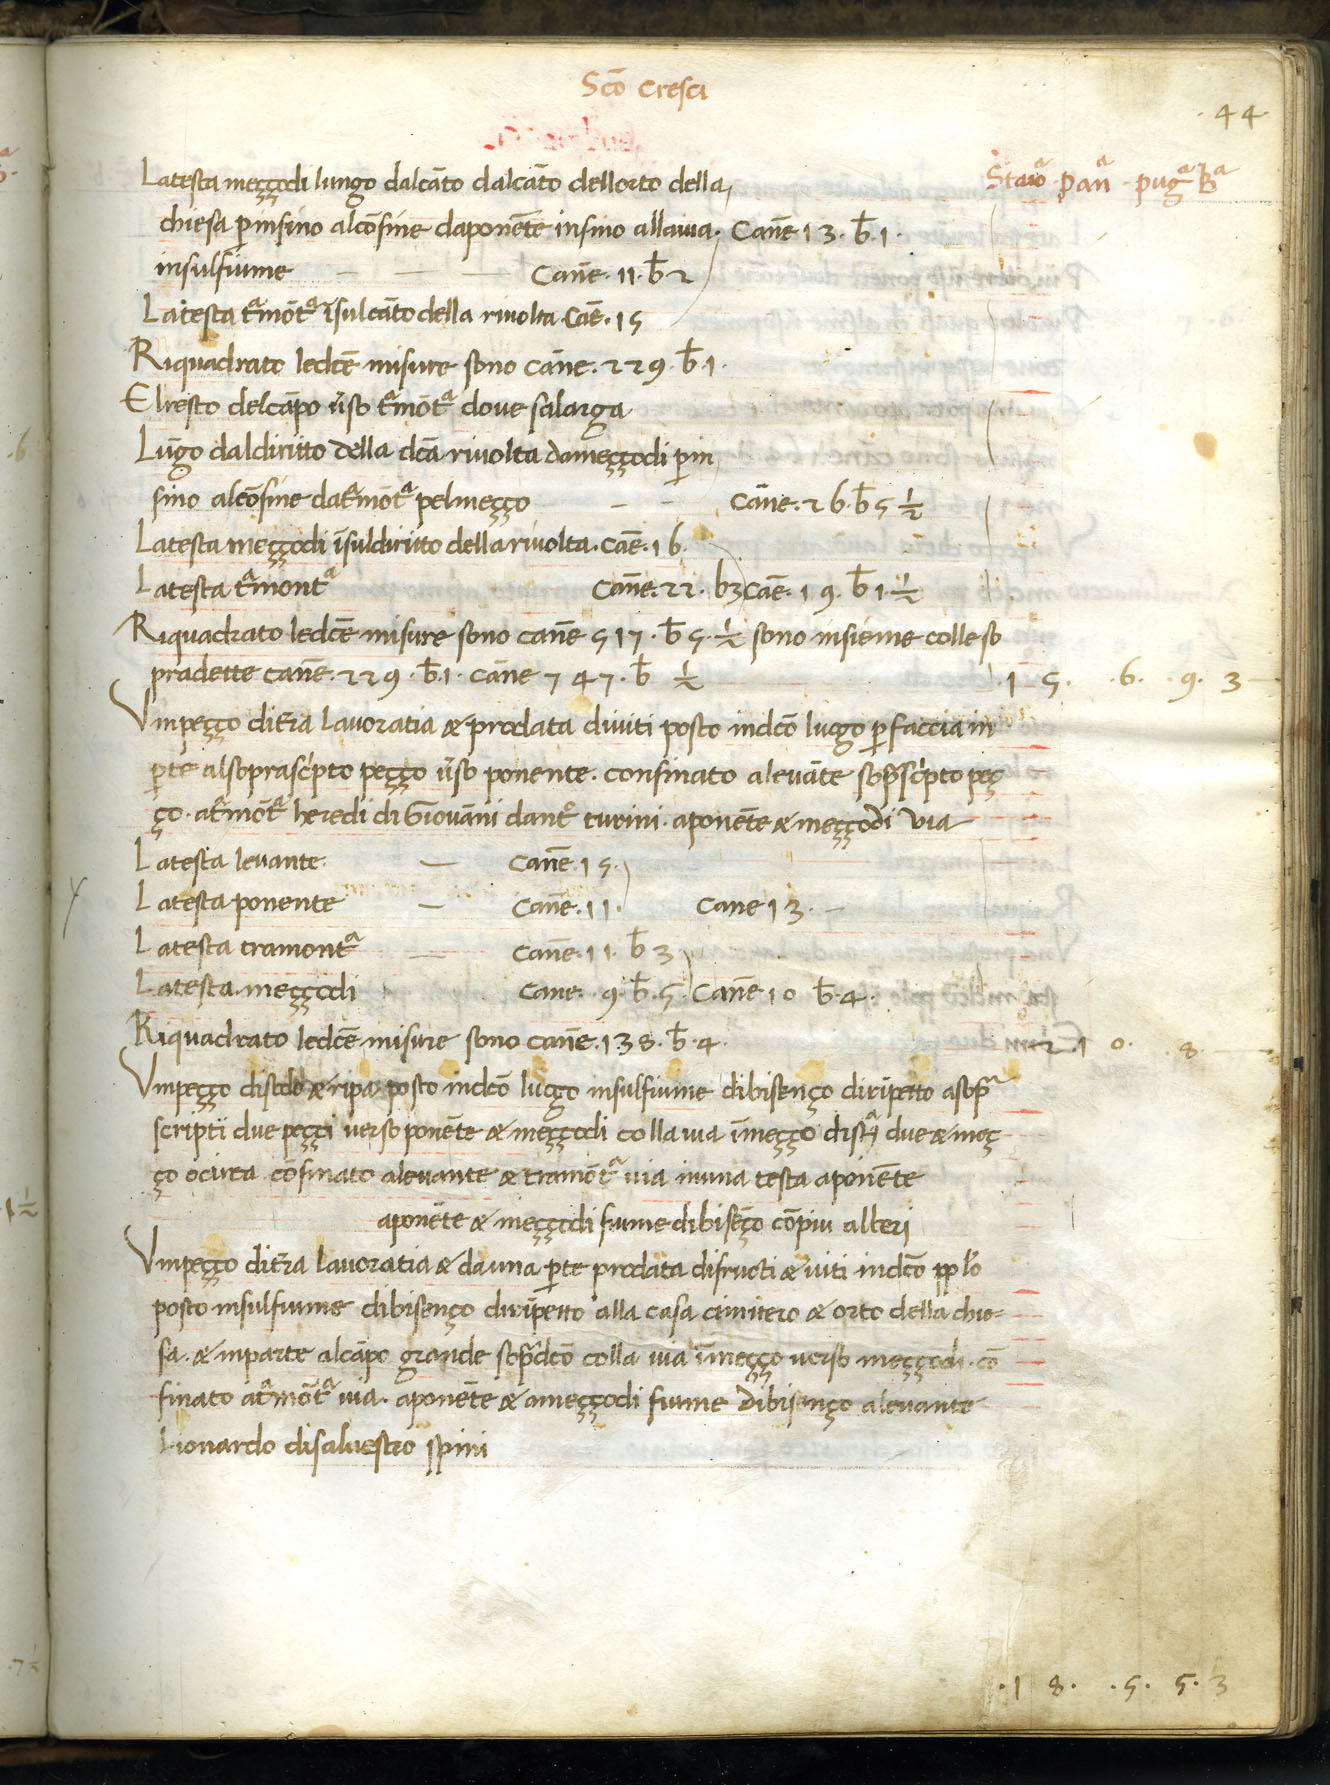 Scõ Cresci
· 44
Staiorᵃ panᵃ · pugᵃ Bᵃ
Latesta meççodi lungo dalcãto dalcãto dellorto della
chiesa p̱ insino alcõfine daponẽte insino allauia · Cañe 13 · b̄ · 1 ·
insulfiume — — — Cañe · 11 · b̄ 2
Latesta t̃mõtᵃ ĩsulcãto della riuolta · Cãe · 15
Riquadrato ledcẽ misure sono cañe · 229 · b̄ · 1 ·
Elresto delcãpo ũso t̃mõtᵃ dove salarga
Lũgo daldiritto della dcã riuolta dameççodi p̱ in
sino alcõfine dat̃mõtᵃ pelmeçço — — Cãne · 26 · b̄ 5 ½
Latesta meççodi ĩsuldiritto dellariuolta · Cãe · 16 ·
Latesta t̃montᵃ Cañe · 22 · b 3 Cãe · 19 · b̄ 1 · ½
Riquadrato ledcẽ misure sono cañe 517 · b̄ 5 · ½ sono insieme colle so
pradette cañe · 229 · b̄ · 1 · cãne 747 · b̄ ½ · 15 · · 6 · · 9 · 3
Vnpeçço dit̃ra lauoratia & prodata diuiti posto indcõ luogo p̱ faccia in
p̱te alsoprascripto peçço ũso ponente · confinato aleuãte sop̃scripto peç
ço · at̃mõtᵃ heredi di Giouãni dantᵒ turini · aponẽte & meççodi via
Latesta leuante — Cañe · 15 ·
Latesta ponente — Cañe · 11 · Cane 13 · —
Latesta tramontᵃ — Cañe · 11 · b̄ 3
Latesta meççodi Cane · 9 · b̄ · 5 · Cañe 10 b̄ · 4 ·
Riquadrato ledcẽ misure sono cañe · 138 · b̄ · 4 · 2 · 10 · · 8 ·
Vnpeçço disodo & ripa posto indcõ luogo insulfiume dibisenço diripetto asop̃
scripti due peççi verso ponẽte & meççodi colla uia ĩmeçço distᵃ due & meç
ço ocirca cõfinato aleuante & tramõtᵃ via inuna testa aponẽte
aponẽte & meççodi fiume dibisẽço cõpiu alberi
Vnpeçço dit̃ra lauoratia & dauna p̱te prodata difructi & uiti indcõ pp̱lo
posto insulfiume dibisenço diripetto alla casa cimitero & orto della chie-
sa · & inparte alcãpo grande sop̃dcõ colla uia ĩmeçço uerso meççodi · cõ
finato at̃mõtᵃ uia · aponẽte & ameççodi fiume dibisenço aleuante
Lionardo disaluestro spini
· 18 · · 5 · 5 · 3